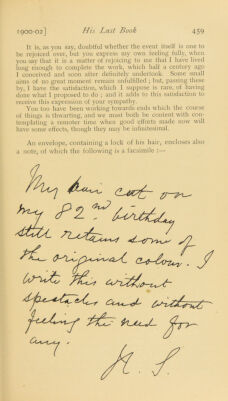 1900-02] His Last Book 459
It is, as you say, doubtful whether the event itself is one to
be rejoiced over, but you express my own feeling fully, when
you say that it is a matter of rejoicing to me that I have lived
long enough to complete the work, which half a century ago
I conceived and soon after definitely undertook. Some small
aims of no great moment remain unfulfilled; but, passing these
by, I have the satisfaction, which I suppose is rare, of having
done what I proposed to do; and it adds to this satisfaction to
receive this expression of your sympathy.
You too have been working towards ends which the course
of things is thwarting, and we must both be content with con-
templating a remoter time when good efforts made now will
have some effects, though they may be infinitesimal.
An envelope, containing a lock of his hair, encloses also
a note, of which the following is a facsimile :—
My hair cut on
my 82nd. birthday
still retains some of
the original colour. I
write this without
spectacles and without
feeling the need for
any.
H. S.